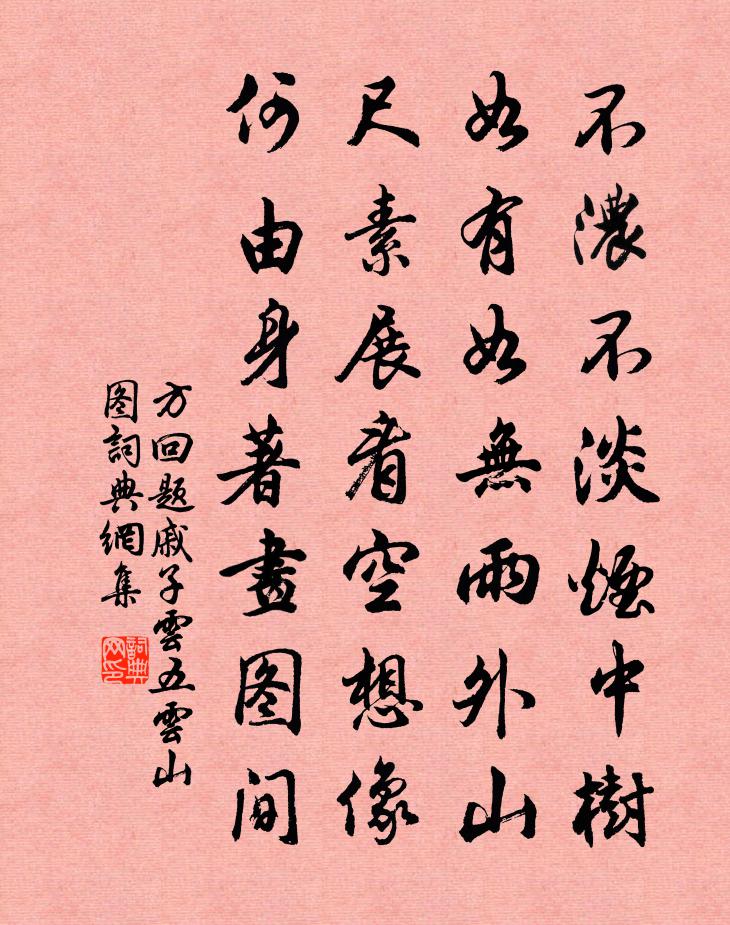 不濃不淡煙中樹
如有如無雨外山
尺素展看空想像
何由身著畫图间
方回题戚子雲五雲山
图詞典網集
詞典网印